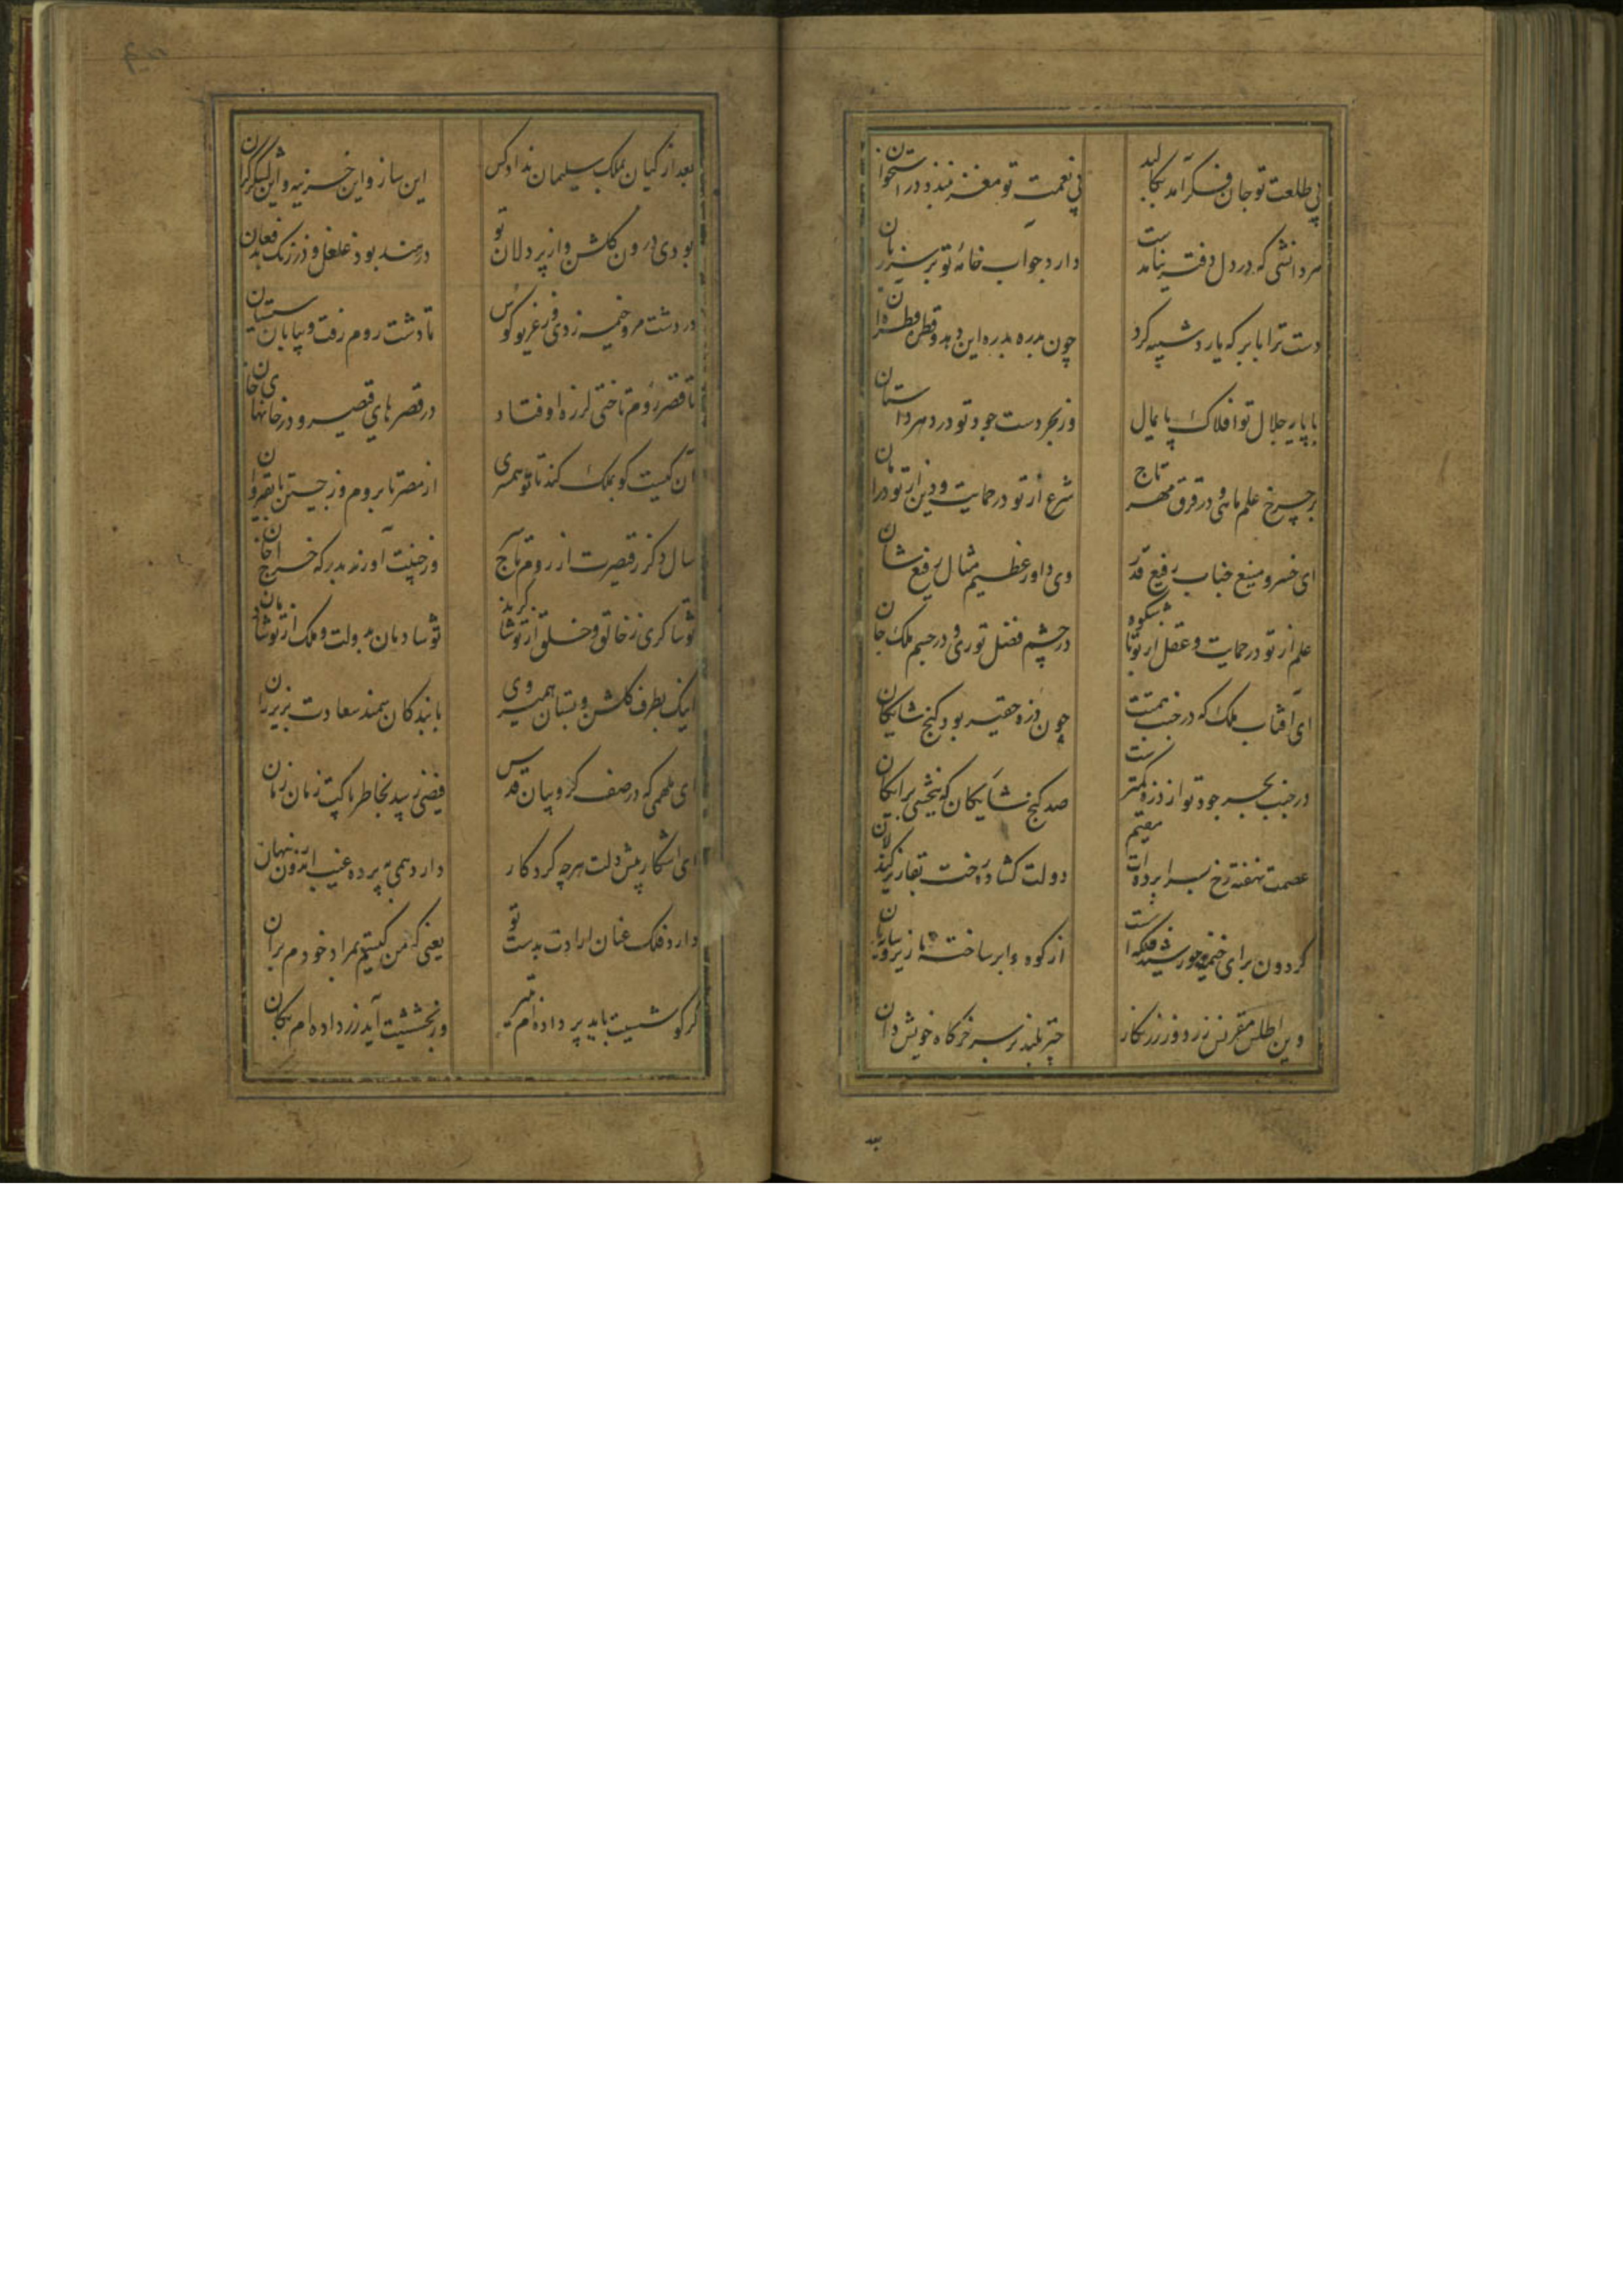 بی طلعت تو جان نگرآمد بکالبد
بی نعمت تو مغز نبندد در استخوان
هر دانشی که در دل دفتر نیامدست
دارد جواب خامه تو بر سر زبان
دست ترا بابر که یارد شبیه کرد
چون بدره بدره این دهد و قطره قطره آن
با پایه جلال تو افلاک پایمال
وز بحر دست جود تو در دهر داستان
بر چرخ علم ماهی و در فرق مهر تاج
شرع از تو در حمایت و دین از تو در امان
ای خسرو منیع جناب رفیع قدر
وی داور عظیم مثال رفیع شان
علم از تو در حمایت و عقل از تو با شکوه
در چشم فضل نوری و در جسم ملک جان
ای آفتاب ملک که در جنب همتت
چون ذره حقیر بود گنج شایگان
در جنب بحر جود تو از ذره کمترست
صد گنج شایگان که ببخشی برایگان
عصمت نهفته رخ بسراپرده‌ات مقیم
دولت گشاده رخت بقا زیر کندلان
گردون برای خیمه خورشید فلکه‌ات
از کوه و ابر ساخته نازیر و سایبان
وین اطلس مقرنس زردوز زرنگار
چتر بلند بر سر خرگاه خویش دان
بعد
بعد از کیان بملک سلیمان نداد کس
این ساز و این خزینه و این لشکر گران
بودی درون گلشن و از پردلان تو
در هند بود غلغل و در زنگ بد فغان
در دشت روم خیمه زدی و غریو کوس
تا دشت روم رفت و بیابان سیستان
تا قصر روم تاختی لرزه اوفتاد
در قصرهای قیصر و در خانهای خان
آن کیست کو بملک کند با تو همسری
از مصر تا بروم و ز چین تا بقیروان
سال دگر ز قیصرت از روم تاج سر
وز چینت آورند بدرگه خراج خان
تو شاکری ز خالق و خلق از تو شاکرند
تو شادمان بدولت و ملک از تو شادمان
اینک بطرف گلشن و بستان همی‌روی
با بندگان سمند سعادت بزیر ران
ای ملهمی که در صف کروبیان قدس
فیضی رسد بخاطر پاکت زمان زمان
ای آشکار پیش دلت هرچه کردگار
دارد همی به پرده غیب اندرون نهان
دارد فلک عنان ارادت بدست تو
یعنی که من کیستم بمراد خودم بران
گر کوششیت باید پر داده‌ام به تیر
ور بخششیت آید زر داده‌ام بکان